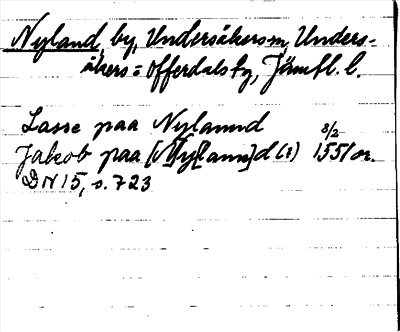 Nyland, by, Undersåkers sn, Unders-
åkers = Offerdals ty, Jämtl. l.
Lasse paa Nylannd
Jakob paa [N]y[lann]d (?) 8/2 1551 or.
DN 15, s. 723